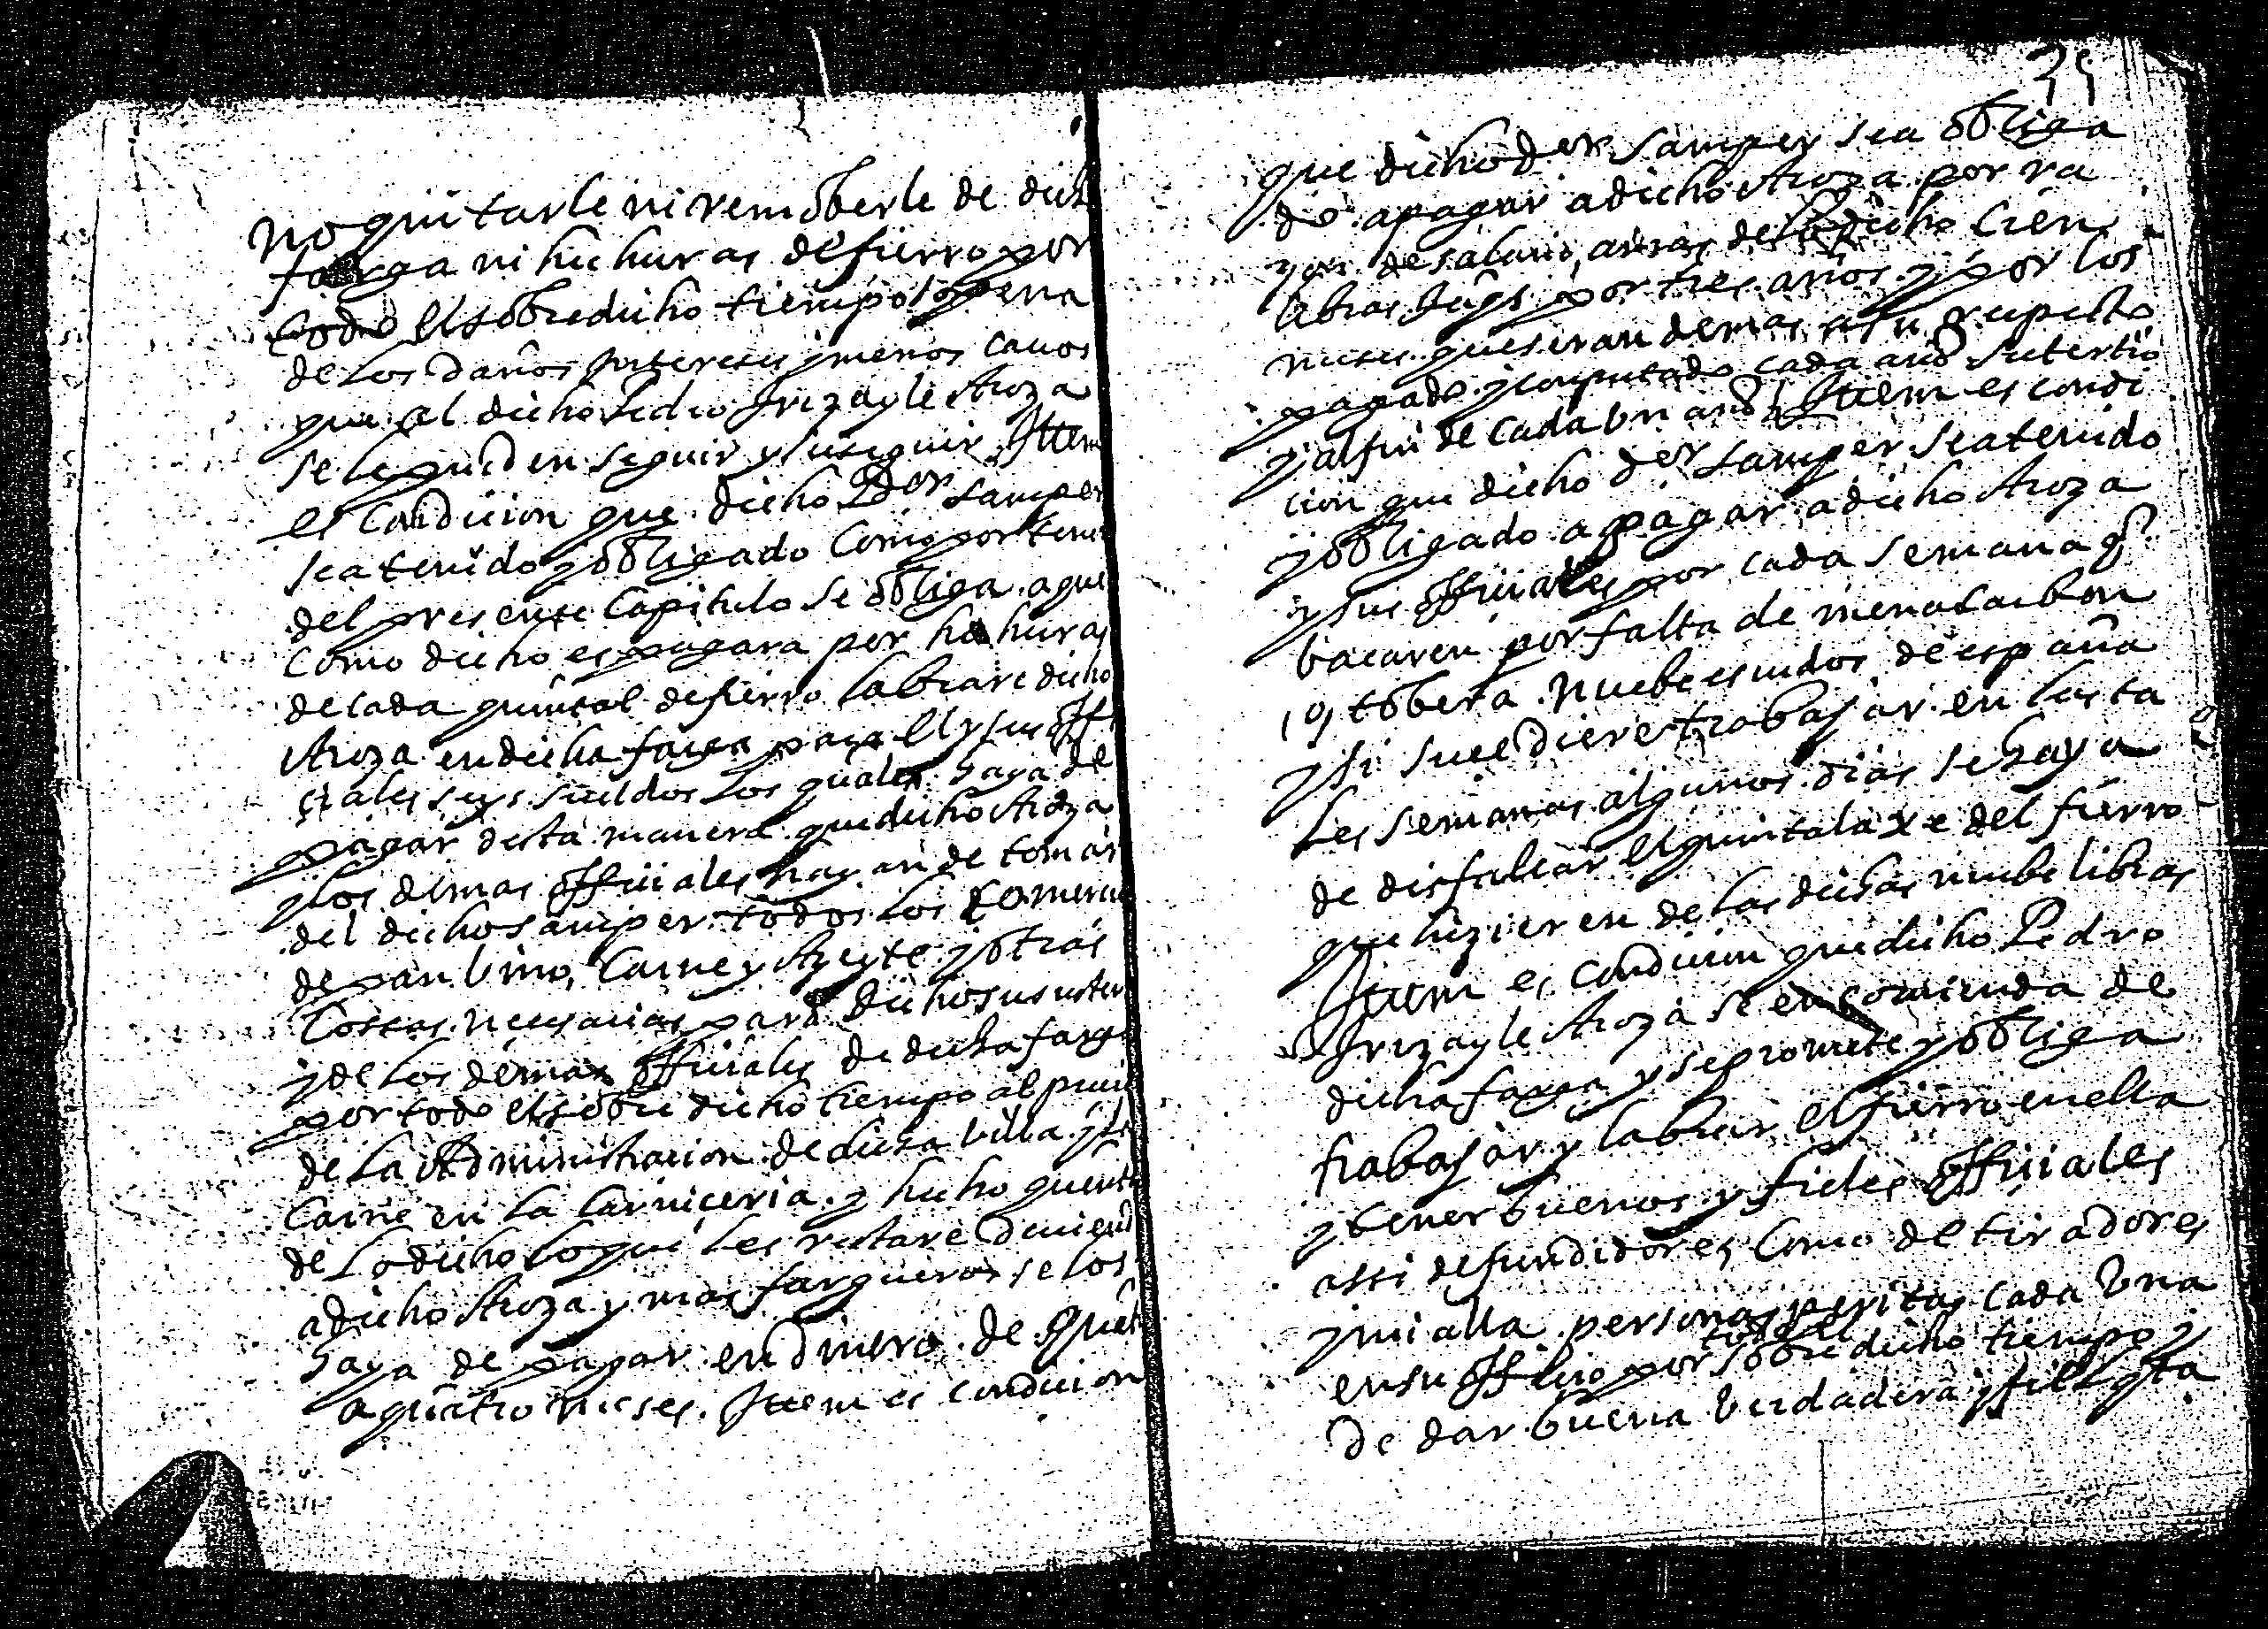 no quitarle ni remoberle de dich
farga ni hichuras de fierro por
todo el sobredicho tiempo so pena
de los daños intereses y menos cauos
que al dicho Pedro Yrizayle Aroza
se le pueden seguir y suseguir Item
es condicion que dicho Dor Samper
sea tenido y obligado como por tenor
del presente Capitulo se obliga a que
como dicho es pagara por hichuras
de cada quintal de fierro labrare dicho
Aroza en dicha farga para el y sus offi
ciales seys sueldos los quales haya de
pagar desta manera que dicho Aroza
y los demas officiales hayan de tomar
del dicho Samper todos los
de pan bino, Carne y Azeyte y otras
cossas necesarias para dicho su susten
y de los demas officiales de dicha farga
por todo el sobre dicho tiempo al precio
de la Administracion de dicha billa y la
Carne en la carniceria y hecho quenta
de lo dicho lo que les restare deuiend
a dicho Aroza y mas fargueros se los
haya de pagar en dinero de quat
a quatro meses. Item es condicion
35
que dicho dor Samper sea obliga
do a pagar a dicho Aroza por ra
zon de salario, a mas de lo dicho cien
libras Jaqs por tres años y por los
meses que seran demas a su respecto
pagado y computado cada año su tertio
y al fin de cada bn año Item es condi
cion que dicho dor Samper sea tenido
y obligado a pagar a dicho Aroza
y sus officiales por cada semana q
bacaren por falta de mena carbon
o tobera nuebe escudos de españa
y si sucediere trabajar en las ta
les semanas algunos dias se haya
de disfalcar el quintalaxe del fierro
que hizieren de las dichas nuebe libras
Item es condicion que dicho Pedro
Yrizayle Aroza se encomienda de
dicha farga y se promete y obliga
trabajar y labrar el fierro en ella
y tener buenos y fieles officiales
assi de fundidores como de tiradores
y mialla personas peritas cada bna
en su officio por todo el sobre dicho tiempo y
de dar buena berdadera y fiel qta